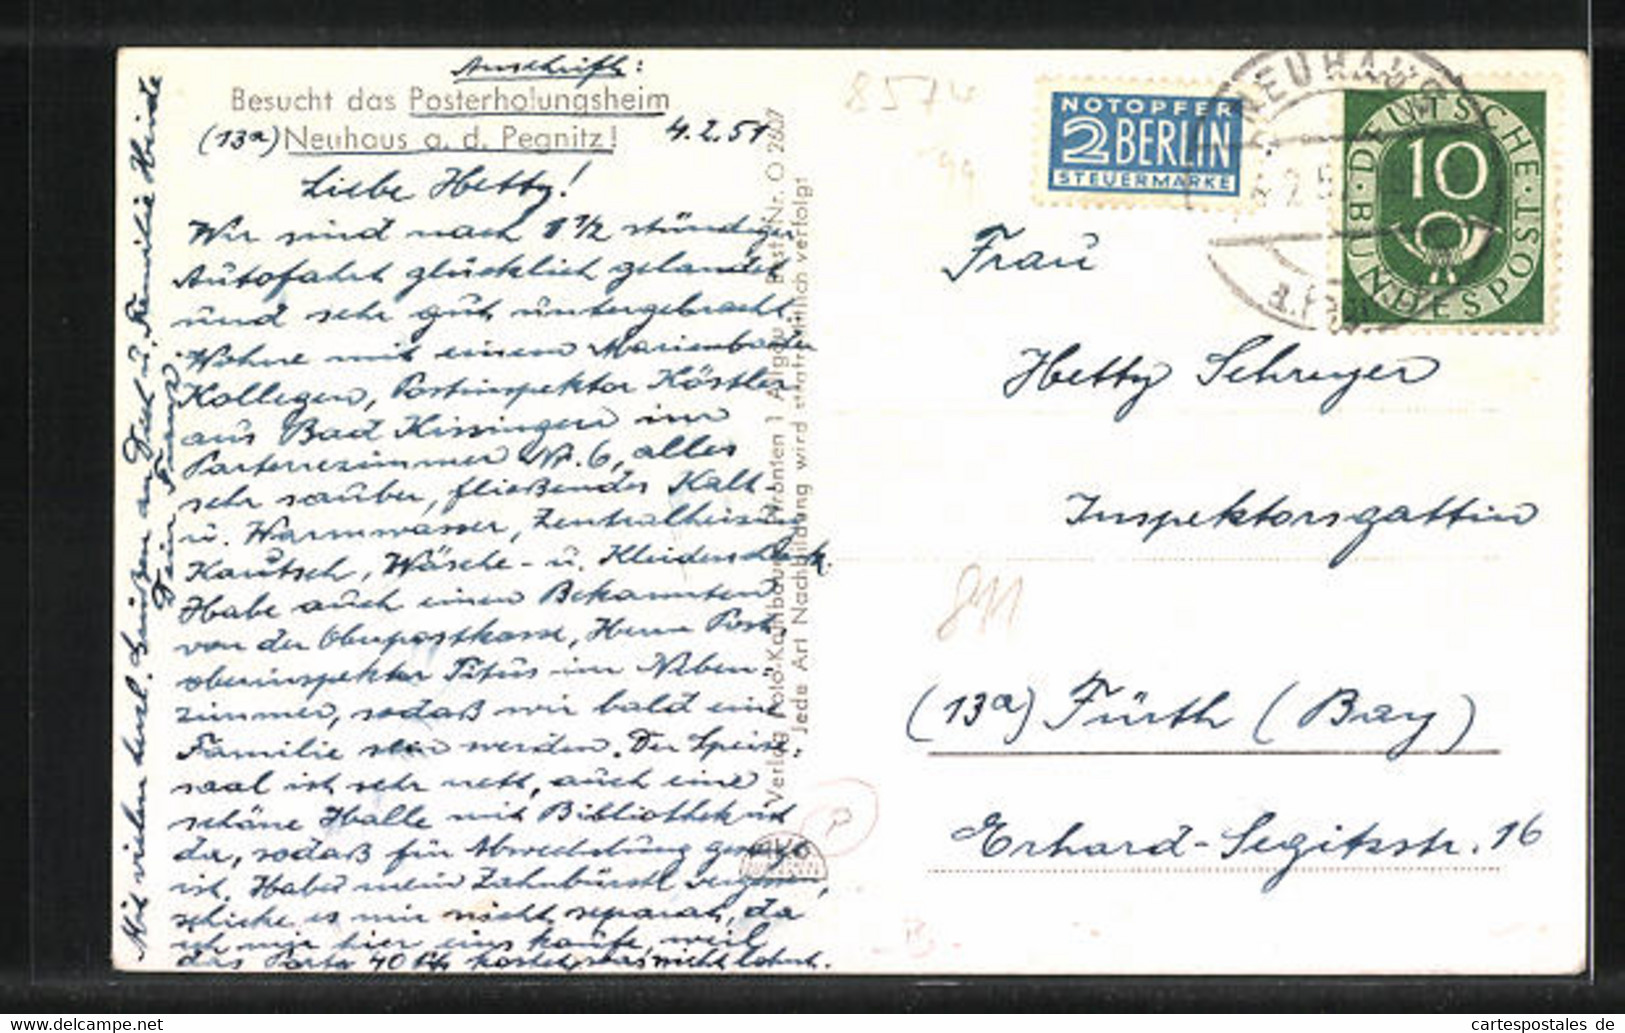 Anschrift:
Besucht das Posterholungsheim
(13a) Neuhaus a. d. Pegnitz!
4.2.51
Liebe Hetty!
Wir sind nach 1 1/2 stündiger
Autofahrt glücklich gelandet
und sehr gut untergebracht.
Wohne mit einem Marienbader
Kollegen, Postinspektor Köstler
aus Bad Kissingen im
Parterrezimmer Nr. 6, alles
sehr sauber, fließendes Kalt-
u. Warmwasser, Zentralheizung
Kautsch, Wäsche- u. Kleiderschrank.
Habe auch einen Bekannten
von der Oberpostkasse, Herrn Post-
oberinspektor Titus im Neben-
zimmer, sodaß wir bald eine
Familie sein werden. Der Speise-
saal ist sehr nett, auch eine
schöne Halle mit Bibliothek ist
da, sodaß für Abwechslung gesorgt
ist. Habe mein Zahnbürstl vergessen,
schicke es mir nicht separat, da
ich mir hier eins kaufe, weil
das Porto 40 Pfg kostet, was nicht lohnt.
Mit vielen herzl. Grüßen an Dich u. Familie Heinde
Dein Franz
Verlag Foto-Kaltbaum, Pfronten 1 Allgäu Best.-Nr. O 2607
Jede Art Nachbildung wird strafrechtlich verfolgt
8574
99
NOTOPFER
2 BERLIN
STEUERMARKE
NEUHAUS
DEUTSCHE
10
BUNDESPOST
Frau
Hetty Schreyer
Inspektorsgattin
811
(13a) Fürth (Bay)
Erhard-Segitzstr. 16
P
cartespostales de
delcampe.net